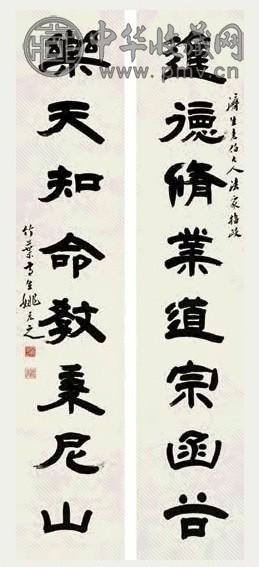 中华收藏网
www.pmv.cn
進德脩業道宗函谷
生老伯大人法家指政
樂天知命敎秉尼山
竹葉亭生姚元之